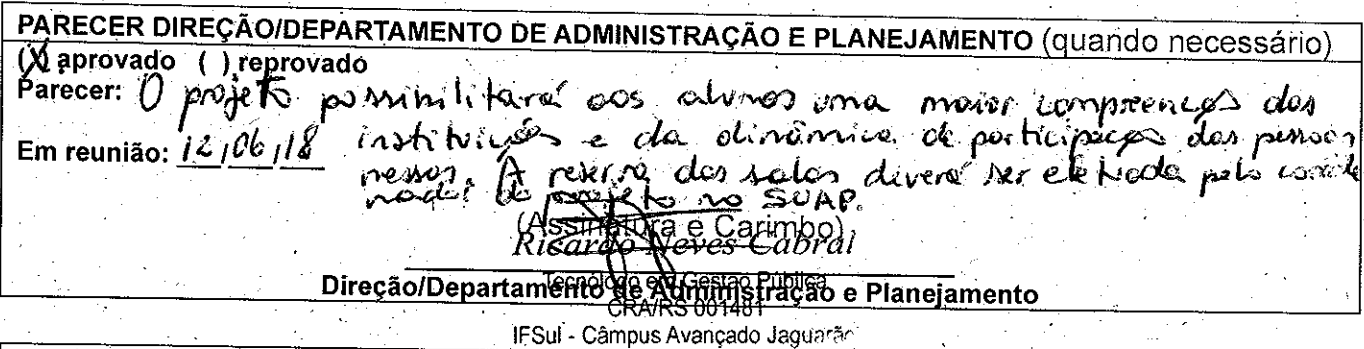 PARECER DIREÇÃO/DEPARTAMENTO DE ADMINISTRAÇÃO E PLANEJAMENTO (quando necessário)
(X) aprovado ( ) reprovado
Parecer: O projeto possibilitará aos alunos uma maior compreenção das
Em reunião: 12/06/18 instituições e da dinâmica de participação das pessoas
nessas. A reserva das salas deverá ser efetuada pelo coorde
nador do projeto no SUAP.
(Assinatura e Carimbo)
Ricardo Neves Cabral
Tecnólogo em Gestão Pública
Direção/Departamento de Administração e Planejamento
CRA/RS 001481
IFSul - Câmpus Avançado Jaguarão